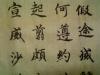 假途滅
何遵約
起翦頗
宣威沙